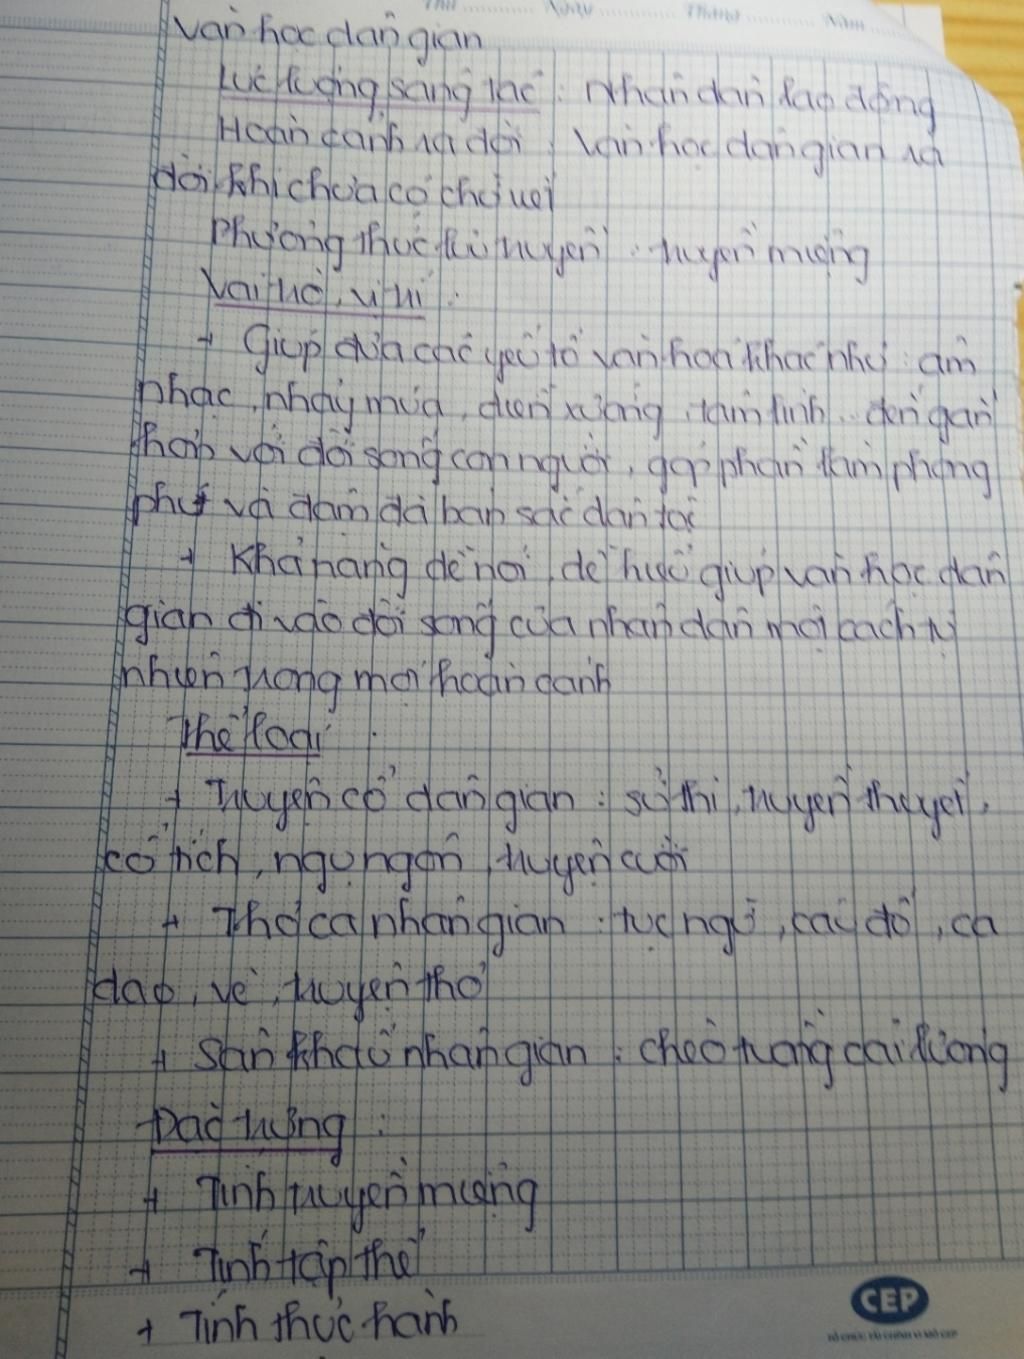 Thứ ............ Ngày ............ Tháng ............ Năm ............
Văn học dân gian
Lực lượng sáng tác : Nhân dân lao động
Hoàn cảnh ra đời : Văn học dân gian ra
đời khi chưa có chữ viết
Phương thức lưu truyền : truyền miệng
Vai trò, vị trí :
+ Giúp đưa các yếu tố văn hoá khác như : âm
nhạc, nhảy múa, diễn xướng, tâm linh... đến gần
hơn với đời sống con người, góp phần làm phong
phú và đậm đà bản sắc dân tộc
+ Khả năng dễ nói, dễ hiểu giúp văn học dân
gian đi vào đời sống của nhân dân một cách tự
nhiên trong mọi hoàn cảnh
Thể loại :
+ Truyện cổ dân gian : sử thi, truyền thuyết,
cổ tích, ngụ ngôn, truyện cười
+ Thơ ca nhân gian : tục ngữ, câu đố, ca
dao, vè, truyện thơ
+ Sân khấu nhân gian : chèo tuồng cải lương
Đặc trưng :
+ Tính truyền miệng
+ Tính tập thể
+ Tính thực hành
CEP
TỔ CHỨC TÀI CHÍNH VI MÔ CEP